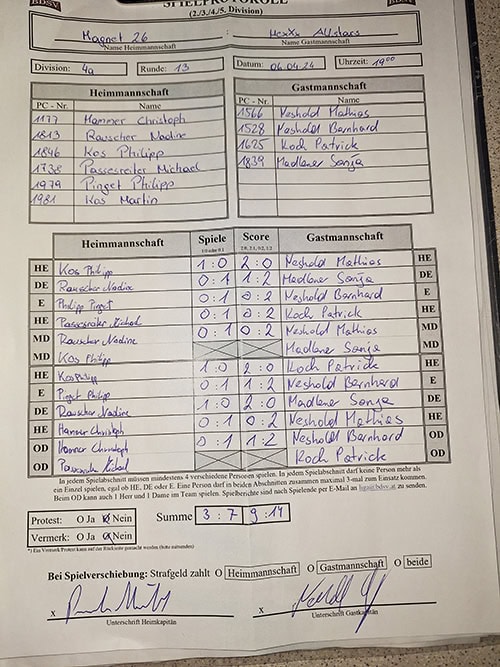 SPIELPROTOKOLL
(2./3./4./5. Division)
Magnet 26 : HexXx Allstars
Name Heimmannschaft Name Gastmannschaft
Division: 4a Runde: 13 Datum: 06.04.24 Uhrzeit: 19⁰⁰
Heimmannschaft Gastmannschaft
PC - Nr. Name PC - Nr. Name
1177 Hammer Christoph 1566 Neshold Mathias
1813 Rauscher Nadine 1528 Neshold Bernhard
1846 Kos Philipp 1625 Koch Patrick
1738 Passesreiter Michael 1839 Madlener Sonja
1979 Pinget Philipp
1981 Kos Martin
Heimmannschaft Spiele Score Gastmannschaft
1:0 oder 0:1 2:0, 2:1, 0:2, 1:2
HE Kos Philipp 1:0 2:0 Neshold Mathias HE
DE Rauscher Nadine 0:1 1:2 Madlener Sonja DE
E Philipp Pinget 0:1 0:2 Neshold Bernhard E
HE Passesreiter Michael 0:1 0:2 Koch Patrick HE
MD Rauscher Nadine 0:1 0:2 Neshold Mathias MD
MD Kos Philipp Madlener Sonja MD
HE Kos Philipp 1:0 2:0 Koch Patrick HE
E Pinget Philipp 0:1 1:2 Neshold Bernhard E
DE Rauscher Nadine 1:0 2:0 Madlener Sonja DE
HE Hammer Christoph 0:1 0:2 Neshold Mathias HE
OD Hammer Christoph 0:1 1:2 Neshold Bernhard OD
OD Passesreiter Michael Koch Patrick OD
In jedem Spielabschnitt müssen mindestens 4 verschiedene Personen spielen. In jedem Spielabschnitt darf keine Person mehr als
ein Einzel spielen, egal ob HE, DE oder E. Eine Person darf in beiden Abschnitten zusammen maximal 3-mal zum Einsatz kommen.
Beim OD kann auch 1 Herr und 1 Dame im Team spielen. Spielberichte sind nach Spielende per E-Mail an
zu senden.
Protest: O Ja O Nein Summe 3:7 9:14
Vermerk: O Ja O Nein
*) Ein Vermerk/Protest kann auf der Rückseite gemacht werden (bitte ankreuzen)
Bei Spielverschiebung: Strafgeld zahlt O Heimmannschaft O Gastmannschaft O beide
x x
Unterschrift Heimkapitän Unterschrift Gastkapitän